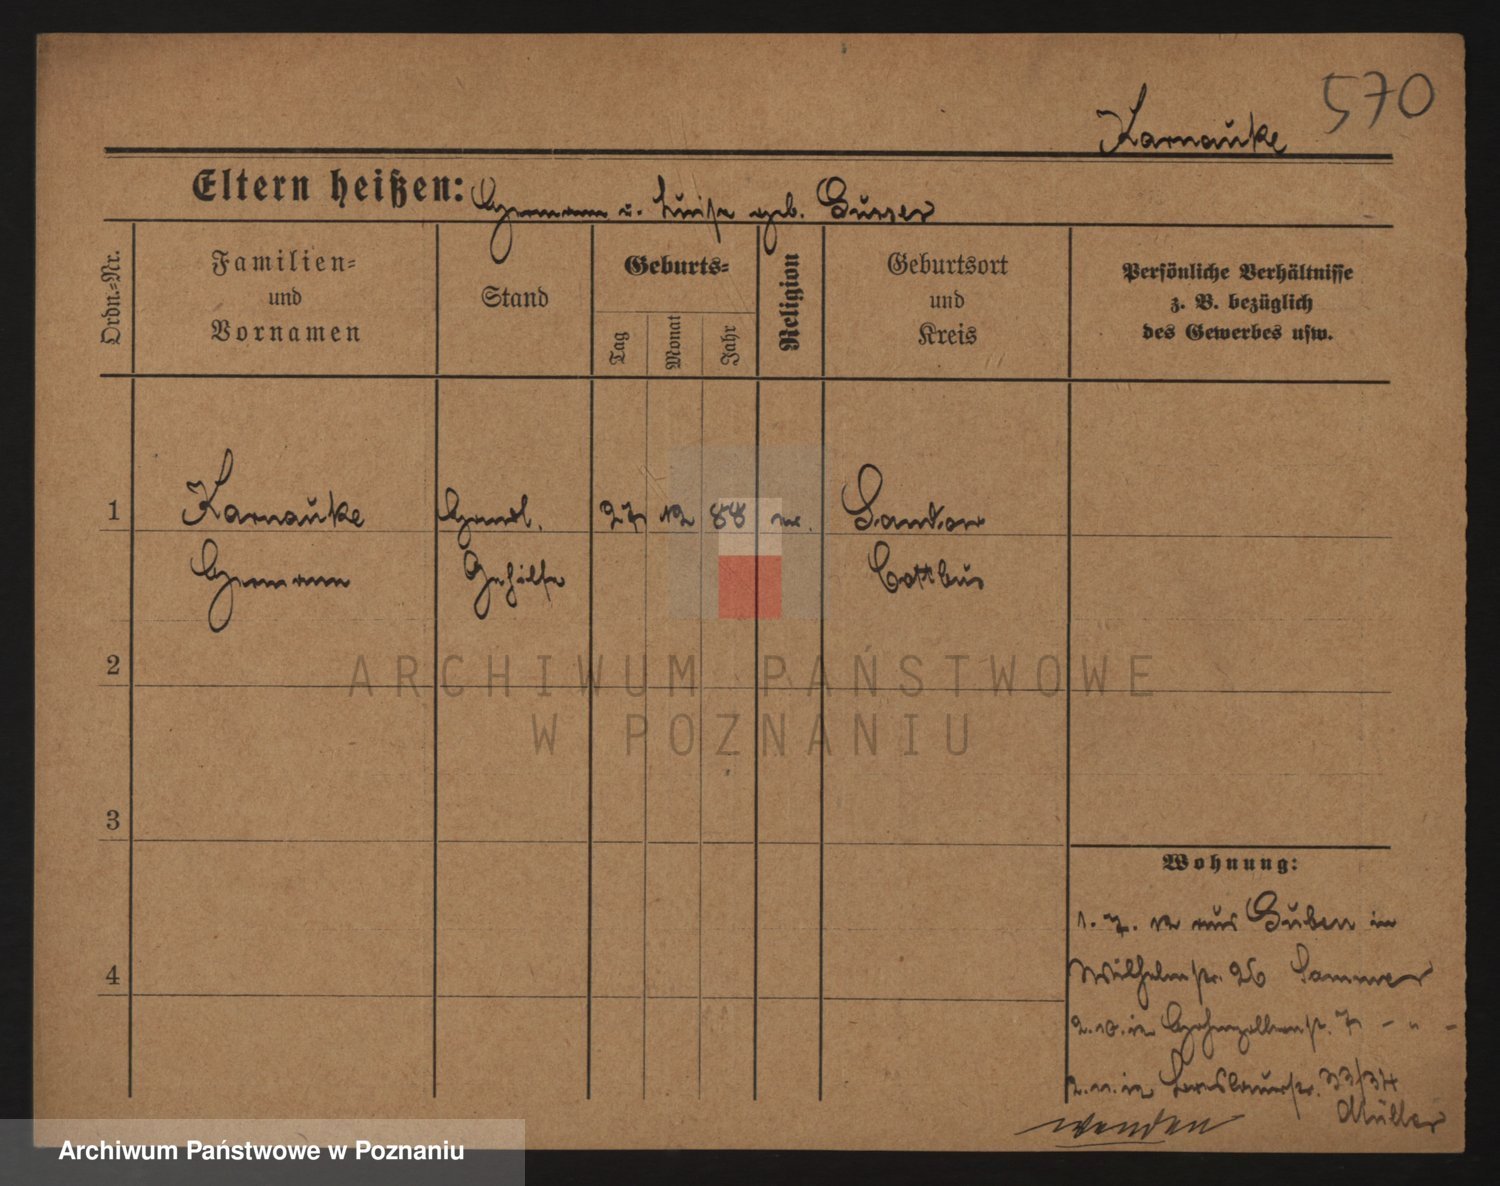 570
Karnauke
Eltern heißen: Hermann u. Luise geb.
Ordn.-Nr.
Familien-
und
Vornamen
Stand
Geburts-
Tag
Monat
Jahr
Religion
Geburtsort
und
Kreis
Persönliche Verhältnisse
z. B. bezüglich
des Gewerbes usw.
1 Karnauke Handl. 27 12 88 ev.
Hermann Gehilfe Cottbus
ARCHIWUM PAŃSTWOWE
W POZNANIU
2
3
4
Wohnung:
1. 7. 12 aus Guben in
Wilhelmstr. 26 Sommer
2. 10. 12 Hohenzollernstr. 7 - " -
2. 11. 12 33/34
Müller
wenden
Archiwum Państwowe w Poznaniu